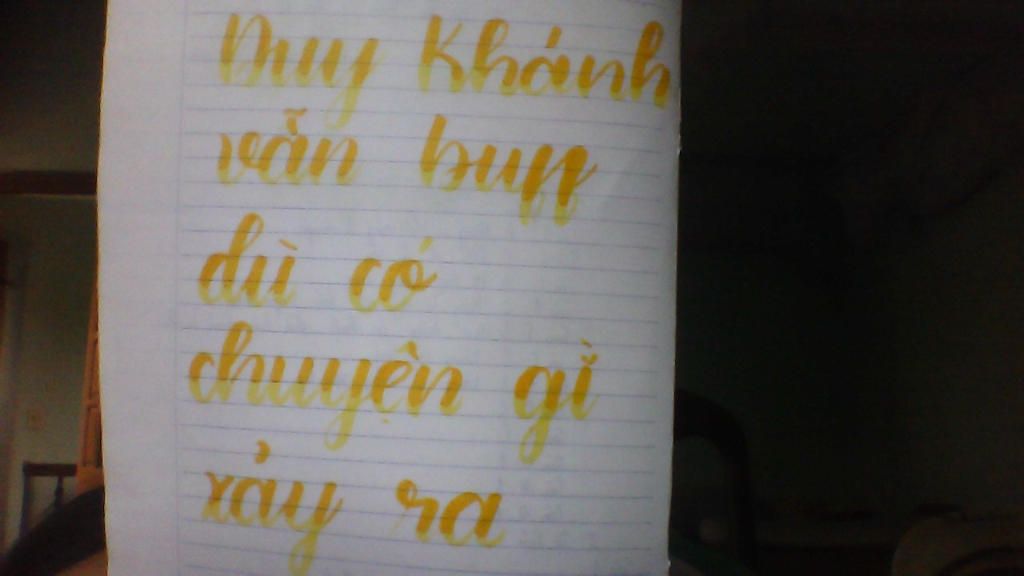 Duy Khánh
vẫn buff
dù có
chuyện gì
xảy ra